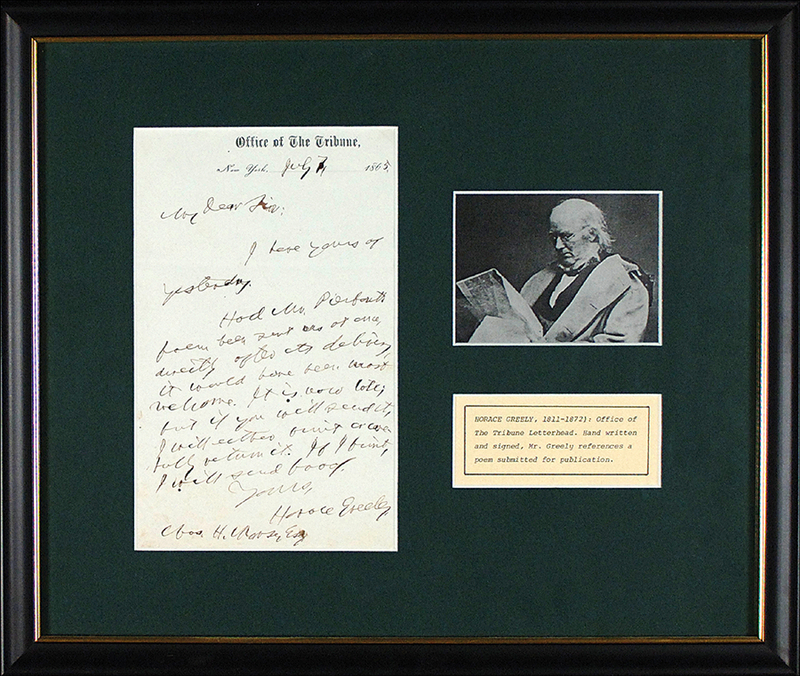 Office of The Tribune,
New York, July 7, 1865
My Dear Sir:
I have yours of
yesterday.
Had Mr. Pierpont's
poem been sent us at once,
directly after its delivery,
it would have been most
welcome. It is now late,
but if you will send it,
I will either print or care-
fully return it. If I print,
I will send proof.
Yours,
Horace Greeley
Chas. H. Morse, Esq
HORACE GREELY, 1811-1872): Office of
The Tribune Letterhead. Hand written
and signed, Mr. Greely references a
poem submitted for publication.